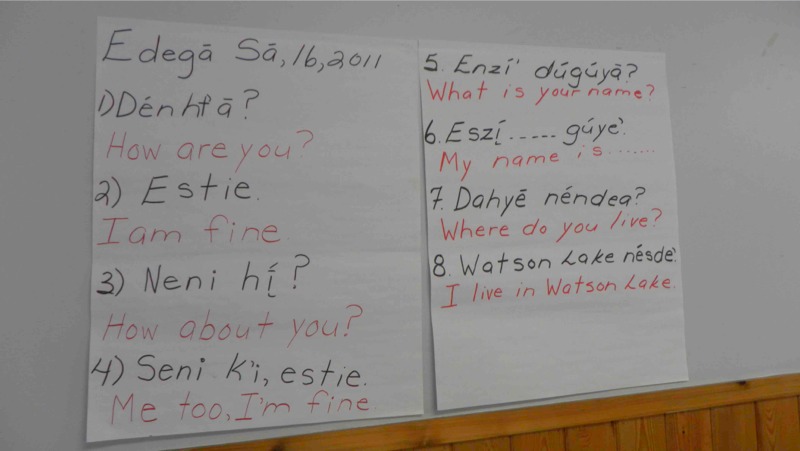 Edegā Sā, 16, 2011
1) Dénht'ā?
How are you?
2) Estie.
I am fine.
3) Neni hį́?
How about you?
4) Seni k'i, estie.
Me too, I'm fine.
5. Enzí' dúgúyā?
What is your name?
6. Eszį́ ..... gúye'.
My name is .......
7. Dahyē néndea?
Where do you live?
8. Watson Lake nésde'.
I live in Watson Lake.